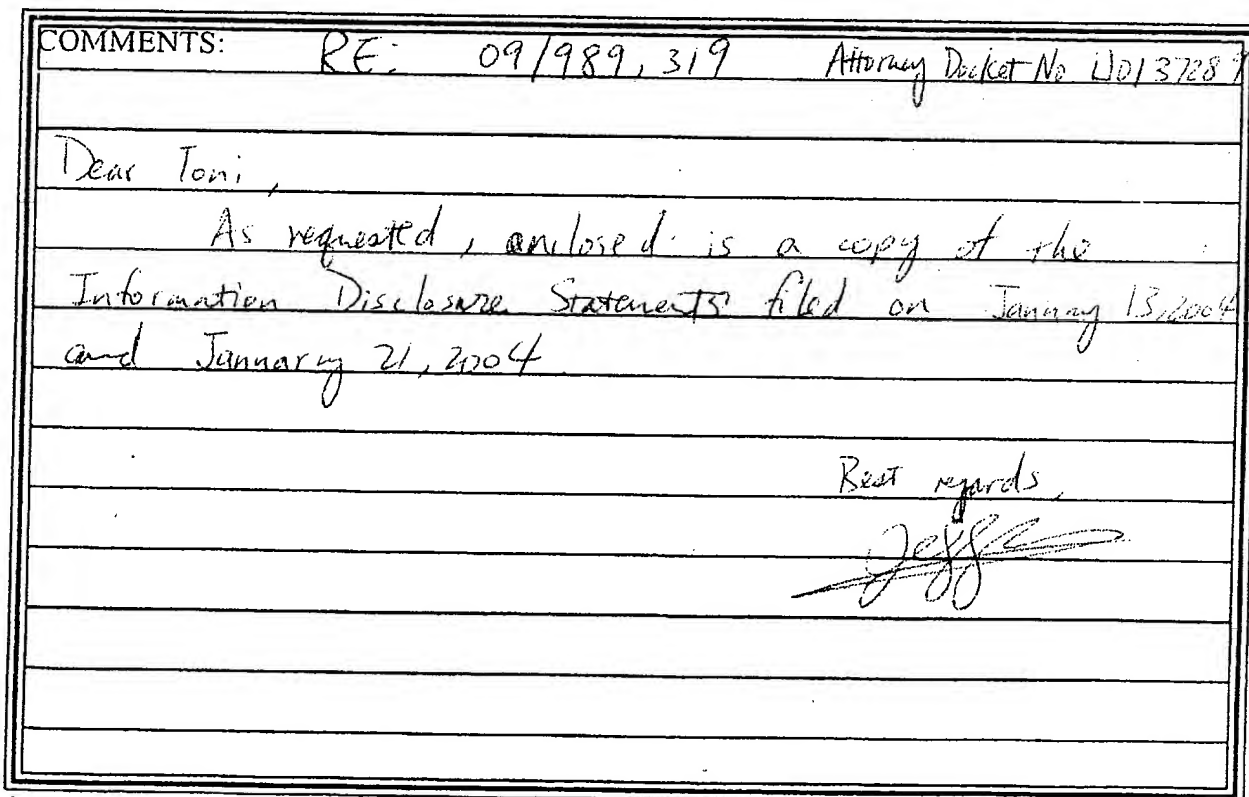 COMMENTS: RE: 09/989,319 Attorney Docket No
Dear Toni,
As requested, enclosed is a copy of the
Information Disclosure Statements filed on January 13, 2004
and January 21, 2004
Best regards,